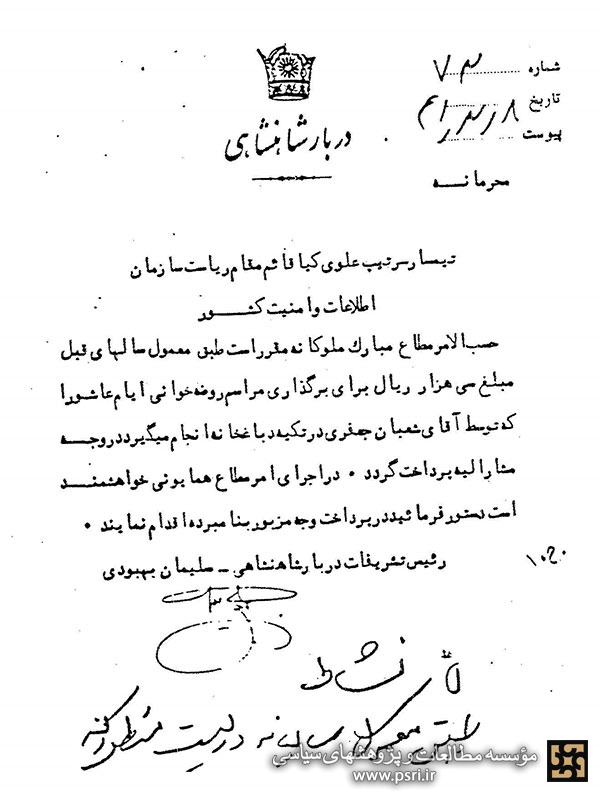 شماره ۷۳
تاریخ ۴۱/۳/۸
پیوست
دربار شاهنشاهی
محرمانه
تیمسار سرتیپ علوی کیا قائم مقام ریاست سازمان
اطلاعات و امنیت کشور
حسب الامر مطاع مبارک ملوکانه مقرر است طبق معمول سالهای قبل
مبلغ سی هزار ریال برای برگذاری مراسم روضه خوانی ایام عاشورا
که توسط آقای شعبان جعفری در تکیه دباغخانه انجام میگیرد در وجه
مشارالیه پرداخت گردد . در اجرای امر مطاع همایونی خواهشمند
است دستور فرمائید در پرداخت وجه مزبور بنامبرده اقدام نمایند .
رئیس تشریفات دربار شاهنشاهی - سلیمان بهبودی
نشاط
طبق معمول سالیانه در لیست منظور کنید
مؤسسه مطالعات و پژوهشهای سیاسی
www.psri.ir